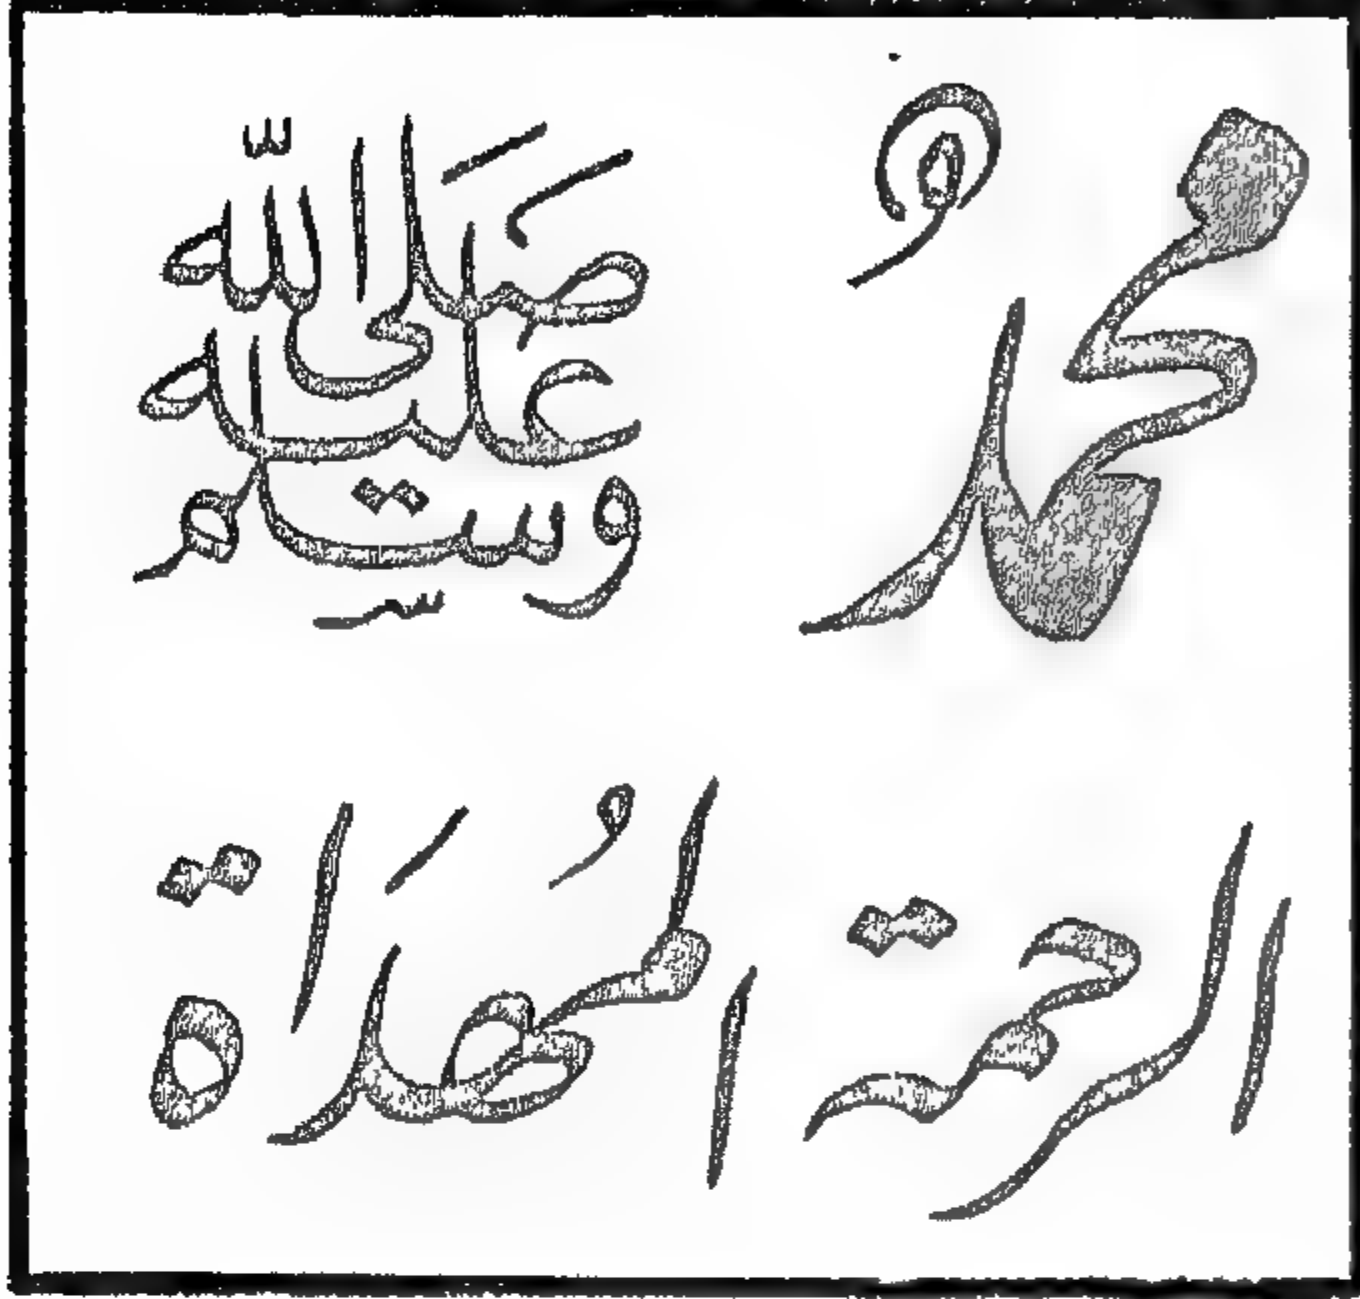 محمد صَلَى اللّه عليه وسلم
الرحمة المُهدَاة